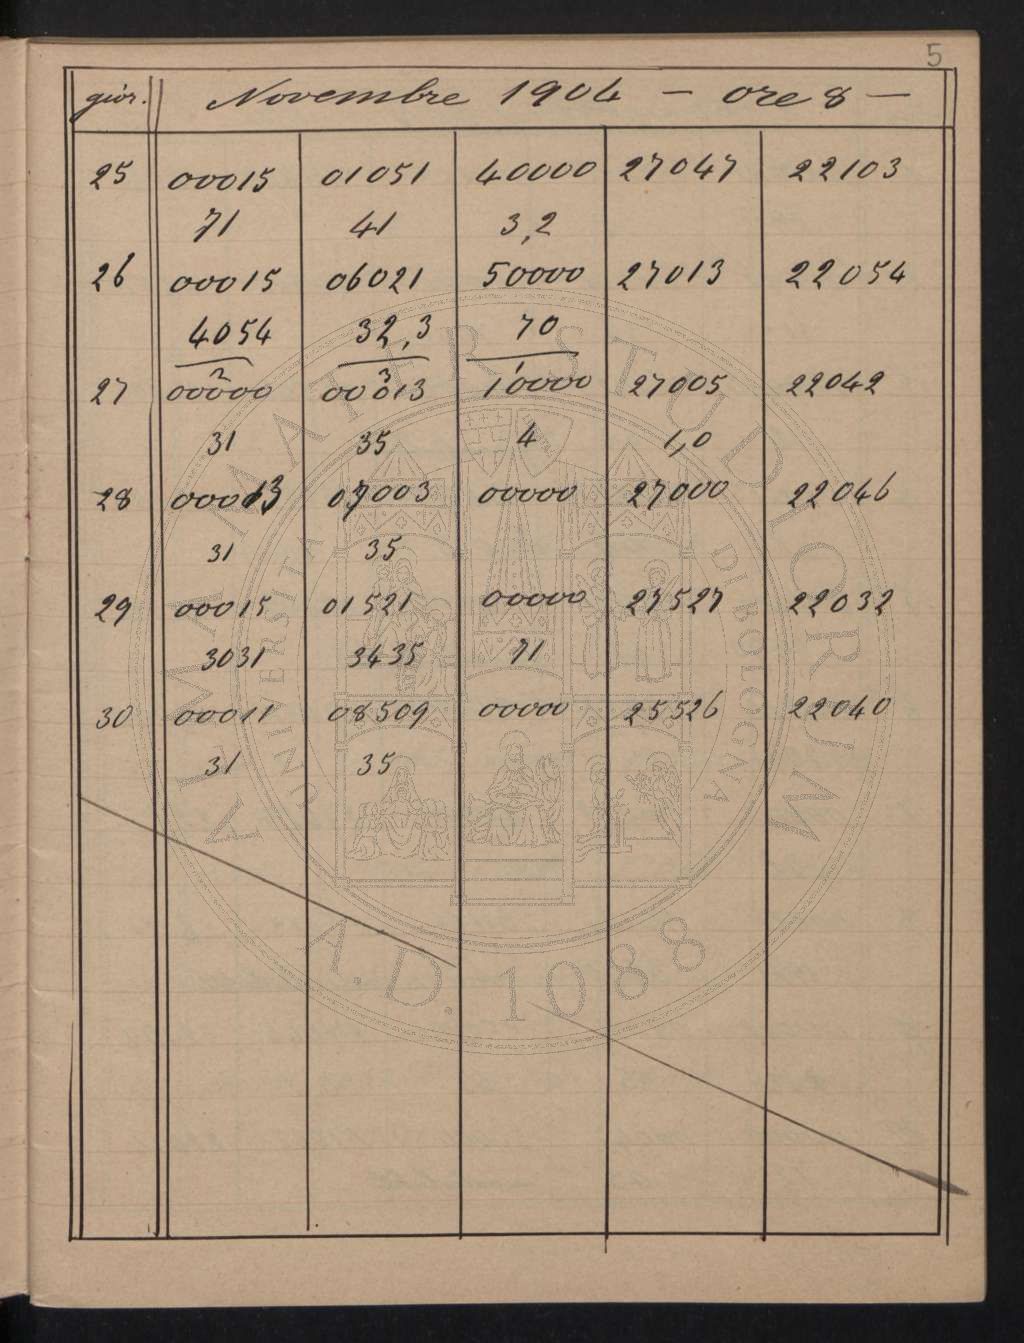 5
gior. Novembre 1904 — ore 8 —
25 00015 01051 40000 27047 22103
71 41 3,2
26 00015 06021 50000 27013 22054
4054 32,3 70
2 3 1
27 00000 00013 10000 27005 22042
31 35 4 1,0
28 00013 07003 00000 27000 22046
31 35
29 00015 01521 00000 27527 22032
3031 3435 71
30 00011 08509 00000 25526 22040
31 35
ALMA MATER STUDIORUM
UNIVERSITA DI BOLOGNA
A.D. 1088